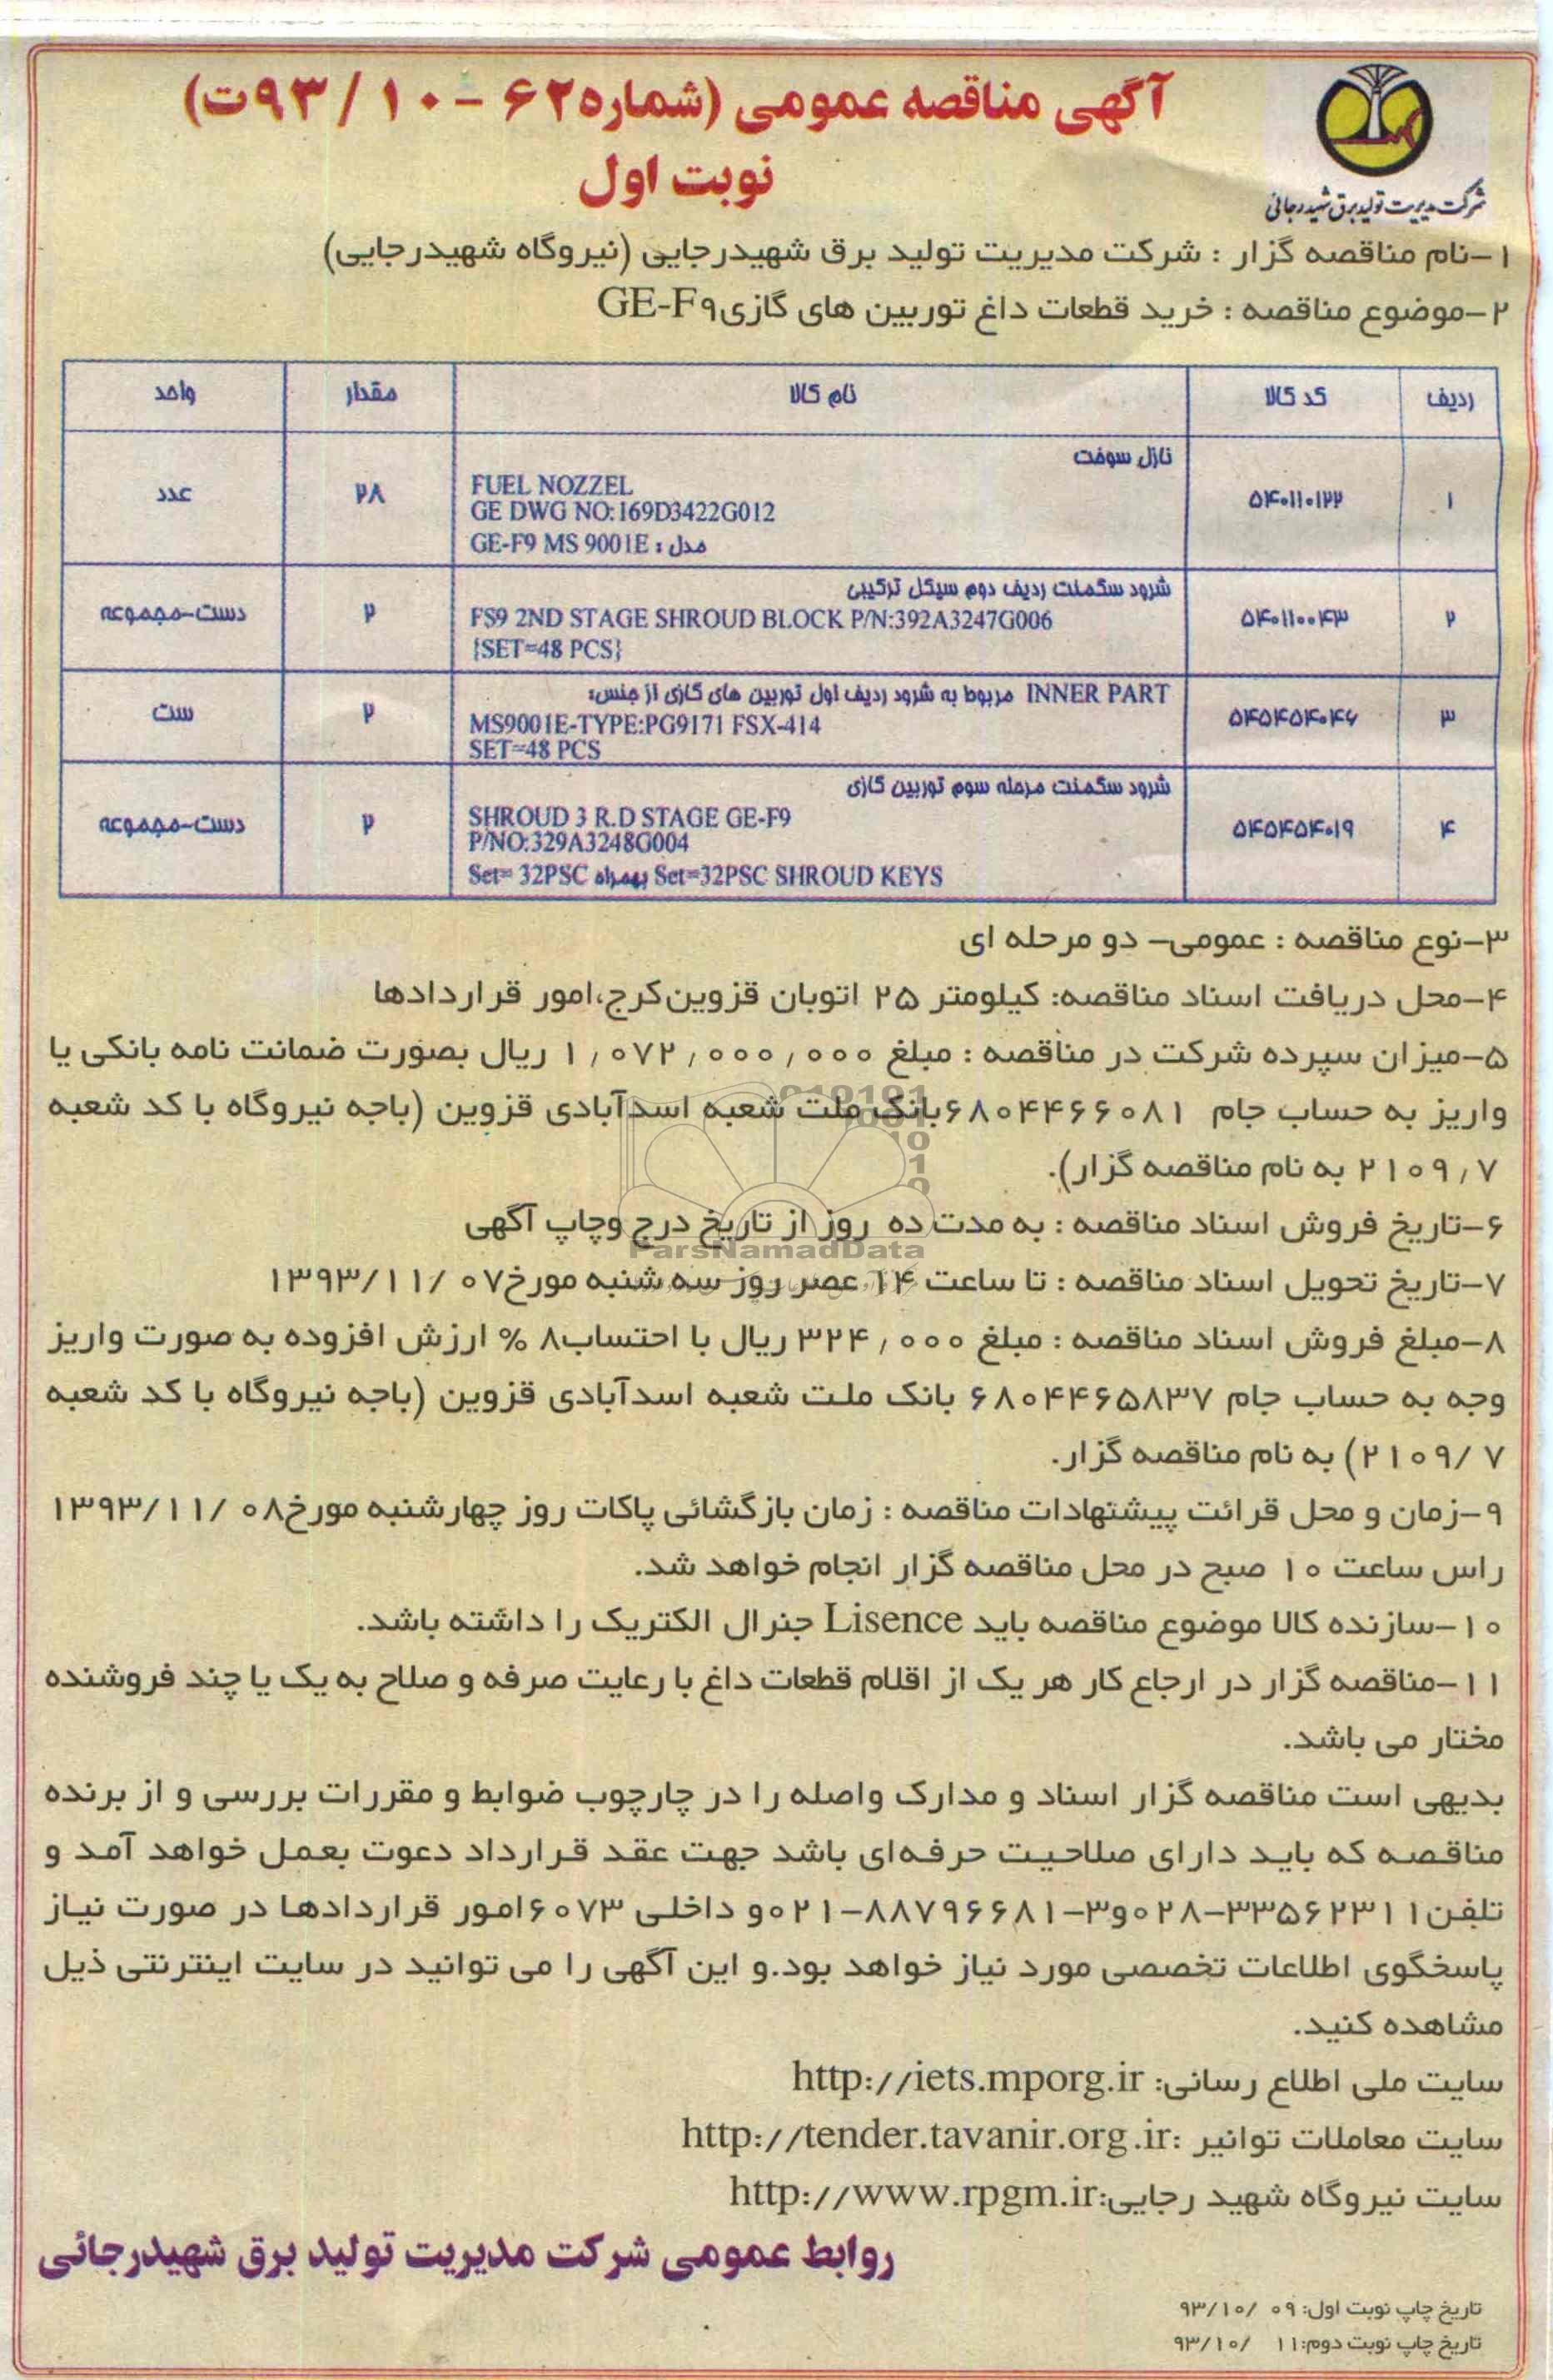 آگهی مناقصه عمومی (شماره ۶۲ - ۹۳/۱۰ت)
نوبت اول
شرکت مدیریت تولید برق شهید رجائی
۱-نام مناقصه گزار : شرکت مدیریت تولید برق شهیدرجایی (نیروگاه شهیدرجایی)
۲-موضوع مناقصه : خرید قطعات داغ توربین های گازی GE-F۹
ردیف کد کالا نام کالا مقدار واحد
۱ ۵۴۰۱۱۰۱۲۲ نازل سوخت ۲۸ عدد
FUEL NOZZEL
GE DWG NO:169D3422G012
مدل : GE-F9 MS 9001E
۲ ۵۴۰۱۱۰۰۴۳ شرود سگمنت ردیف دوم سیکل ترکیبی ۲ دست-مجموعه
FS9 2ND STAGE SHROUD BLOCK P/N:392A3247G006
{SET=48 PCS}
۳ ۵۴۵۴۵۴۰۴۶ INNER PART مربوط به شرود ردیف اول توربین های گازی از جنس: ۲ ست
MS9001E-TYPE:PG9171 FSX-414
SET=48 PCS
۴ ۵۴۵۴۵۴۰۱۹ شرود سگمنت مرحله سوم توربین گازی ۲ دست-مجموعه
SHROUD 3 R.D STAGE GE-F9
P/NO:329A3248G004
Set= 32PSC بهمراه Set=32PSC SHROUD KEYS
۳-نوع مناقصه : عمومی- دو مرحله ای
۴-محل دریافت اسناد مناقصه: کیلومتر ۲۵ اتوبان قزوین کرج،امور قراردادها
۵-میزان سپرده شرکت در مناقصه : مبلغ ۱,۰۷۲,۰۰۰,۰۰۰ ریال بصورت ضمانت نامه بانکی یا
واریز به حساب جام ۶۸۰۴۴۶۶۰۸۱ بانک ملت شعبه اسدآبادی قزوین (باجه نیروگاه با کد شعبه
۲۱۰۹٫۷ به نام مناقصه گزار).
ParsNamadData
۶-تاریخ فروش اسناد مناقصه : به مدت ده روز از تاریخ درج وچاپ آگهی
۷-تاریخ تحویل اسناد مناقصه : تا ساعت ۱۴ عصر روز سه شنبه مورخ ۱۳۹۳/۱۱/۰۷
۸-مبلغ فروش اسناد مناقصه : مبلغ ۳۲۴,۰۰۰ ریال با احتساب ۸ % ارزش افزوده به صورت واریز
وجه به حساب جام ۶۸۰۴۴۶۵۸۳۷ بانک ملت شعبه اسدآبادی قزوین (باجه نیروگاه با کد شعبه
۲۱۰۹/۷) به نام مناقصه گزار.
۹-زمان و محل قرائت پیشنهادات مناقصه : زمان بازگشائی پاکات روز چهارشنبه مورخ ۱۳۹۳/۱۱/۰۸
راس ساعت ۱۰ صبح در محل مناقصه گزار انجام خواهد شد.
۱۰-سازنده کالا موضوع مناقصه باید Lisence جنرال الکتریک را داشته باشد.
۱۱-مناقصه گزار در ارجاع کار هر یک از اقلام قطعات داغ با رعایت صرفه و صلاح به یک یا چند فروشنده
مختار می باشد.
بدیهی است مناقصه گزار اسناد و مدارک واصله را در چارچوب ضوابط و مقررات بررسی و از برنده
مناقصه که باید دارای صلاحیت حرفه‌ای باشد جهت عقد قرارداد دعوت بعمل خواهد آمد و
تلفن ۳۳۵۶۲۳۱۱-۰۲۸ و ۳-۸۸۷۹۶۶۸۱-۰۲۱ و داخلی ۶۰۷۳ امور قراردادها در صورت نیاز
پاسخگوی اطلاعات تخصصی مورد نیاز خواهد بود.و این آگهی را می توانید در سایت اینترنتی ذیل
مشاهده کنید.
سایت ملی اطلاع رسانی: http://iets.mporg.ir
سایت معاملات توانیر :http://tender.tavanir.org.ir
سایت نیروگاه شهید رجایی:http://www.rpgm.ir
روابط عمومی شرکت مدیریت تولید برق شهیدرجائی
تاریخ چاپ نوبت اول: ۹۳/۱۰/۰۹
تاریخ چاپ نوبت دوم: ۹۳/۱۰/۱۱